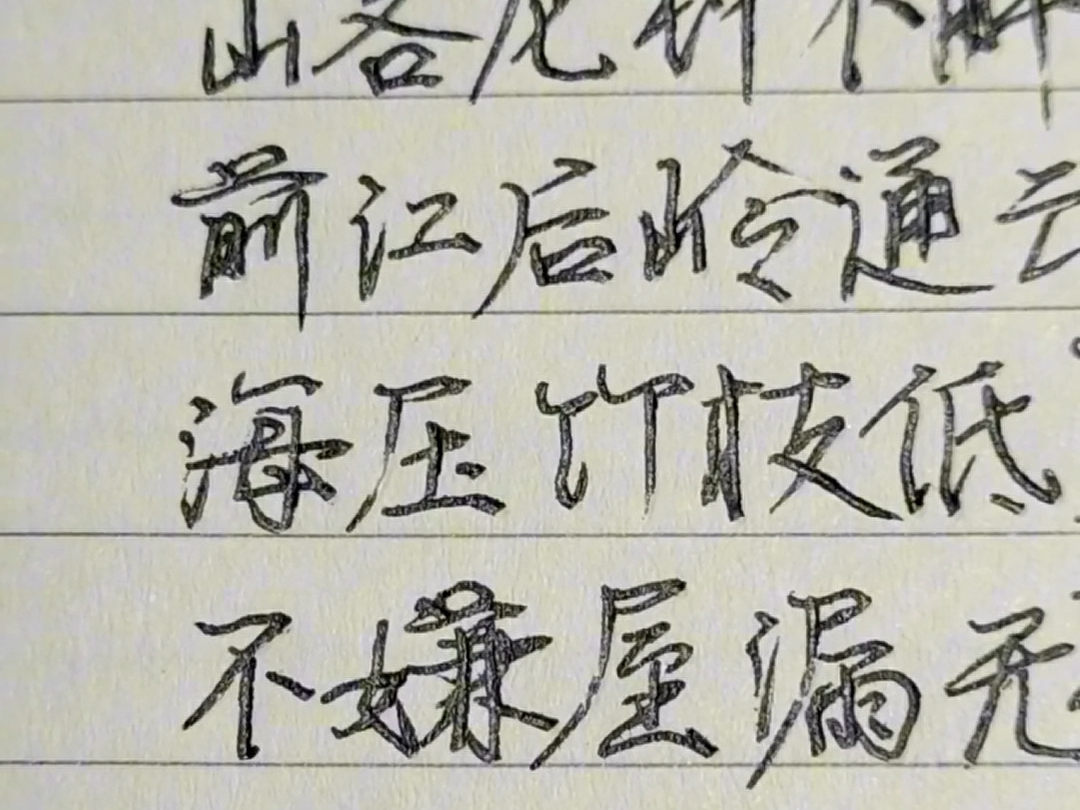 前江后岭通云
海压竹枝低
不嫌屋漏无